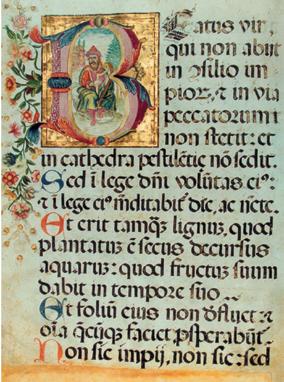 Beatus vir,
qui non abijt
in ↄsilio im
pioꝝ, ⁊ in via
peccatorum
non stetit: et
in cathedra pestilētię nō sedit.
Sed ī lege dnī volūtas eiꝰ:
⁊ ī lege eiꝰ mditabit͛ die, ac ncte.
Et erit tamꝗ lignuꝫ, quod
plantatuꝫ ē secus decursus
aquaruꝫ: quod fructuꝫ suum
dabit in tempore suo.
Et foliū eius non dfluet: ⁊
oīa q̄cūqꝫ faciet ꝓsperabūt͛.
Non sic impij, non sic: sed